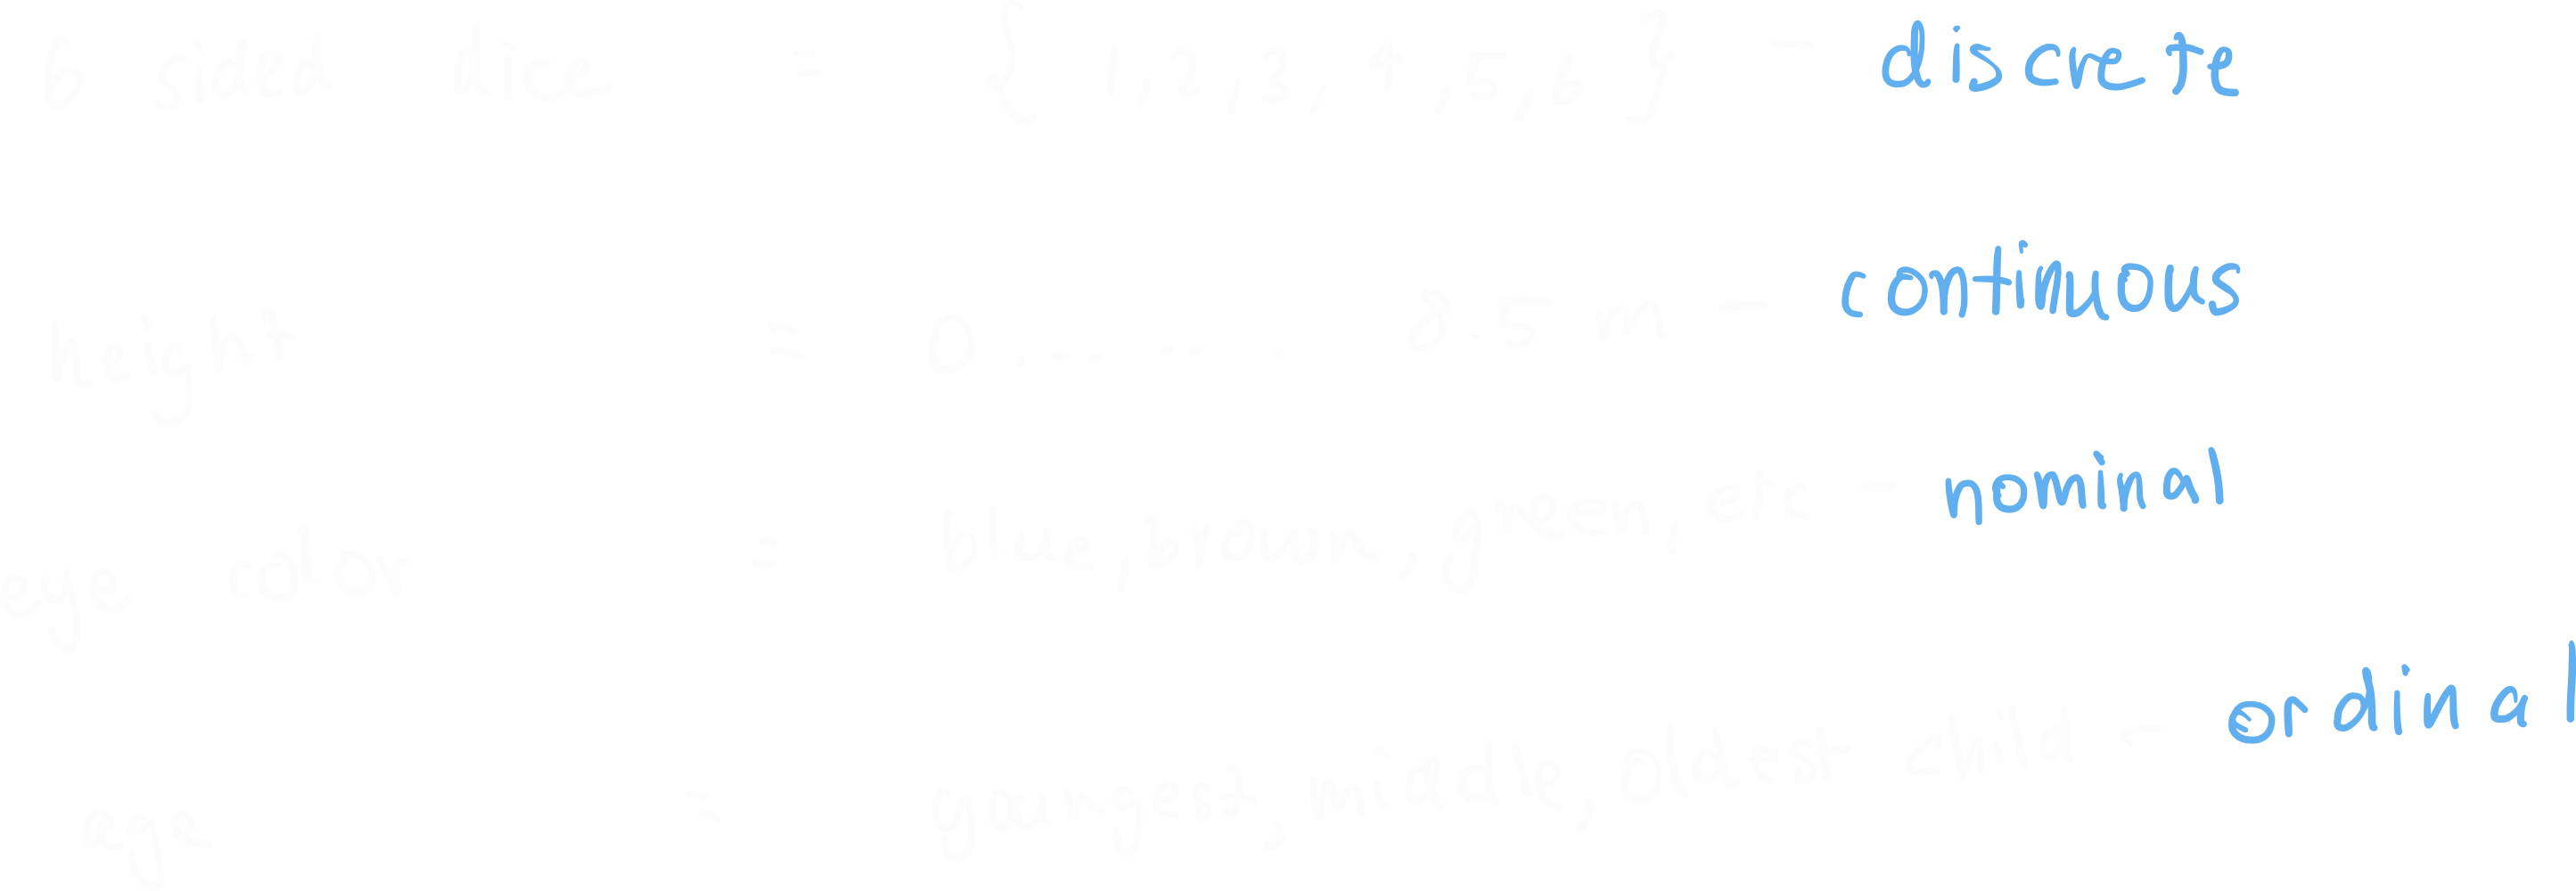 6 sided dice = { 1, 2, 3, 4, 5, 6 } - discrete
height = 0 . . . . . . . 8.5 m - continuous
eye color = blue, brown, green, etc - nominal
age = youngest, middle, oldest child - ordinal